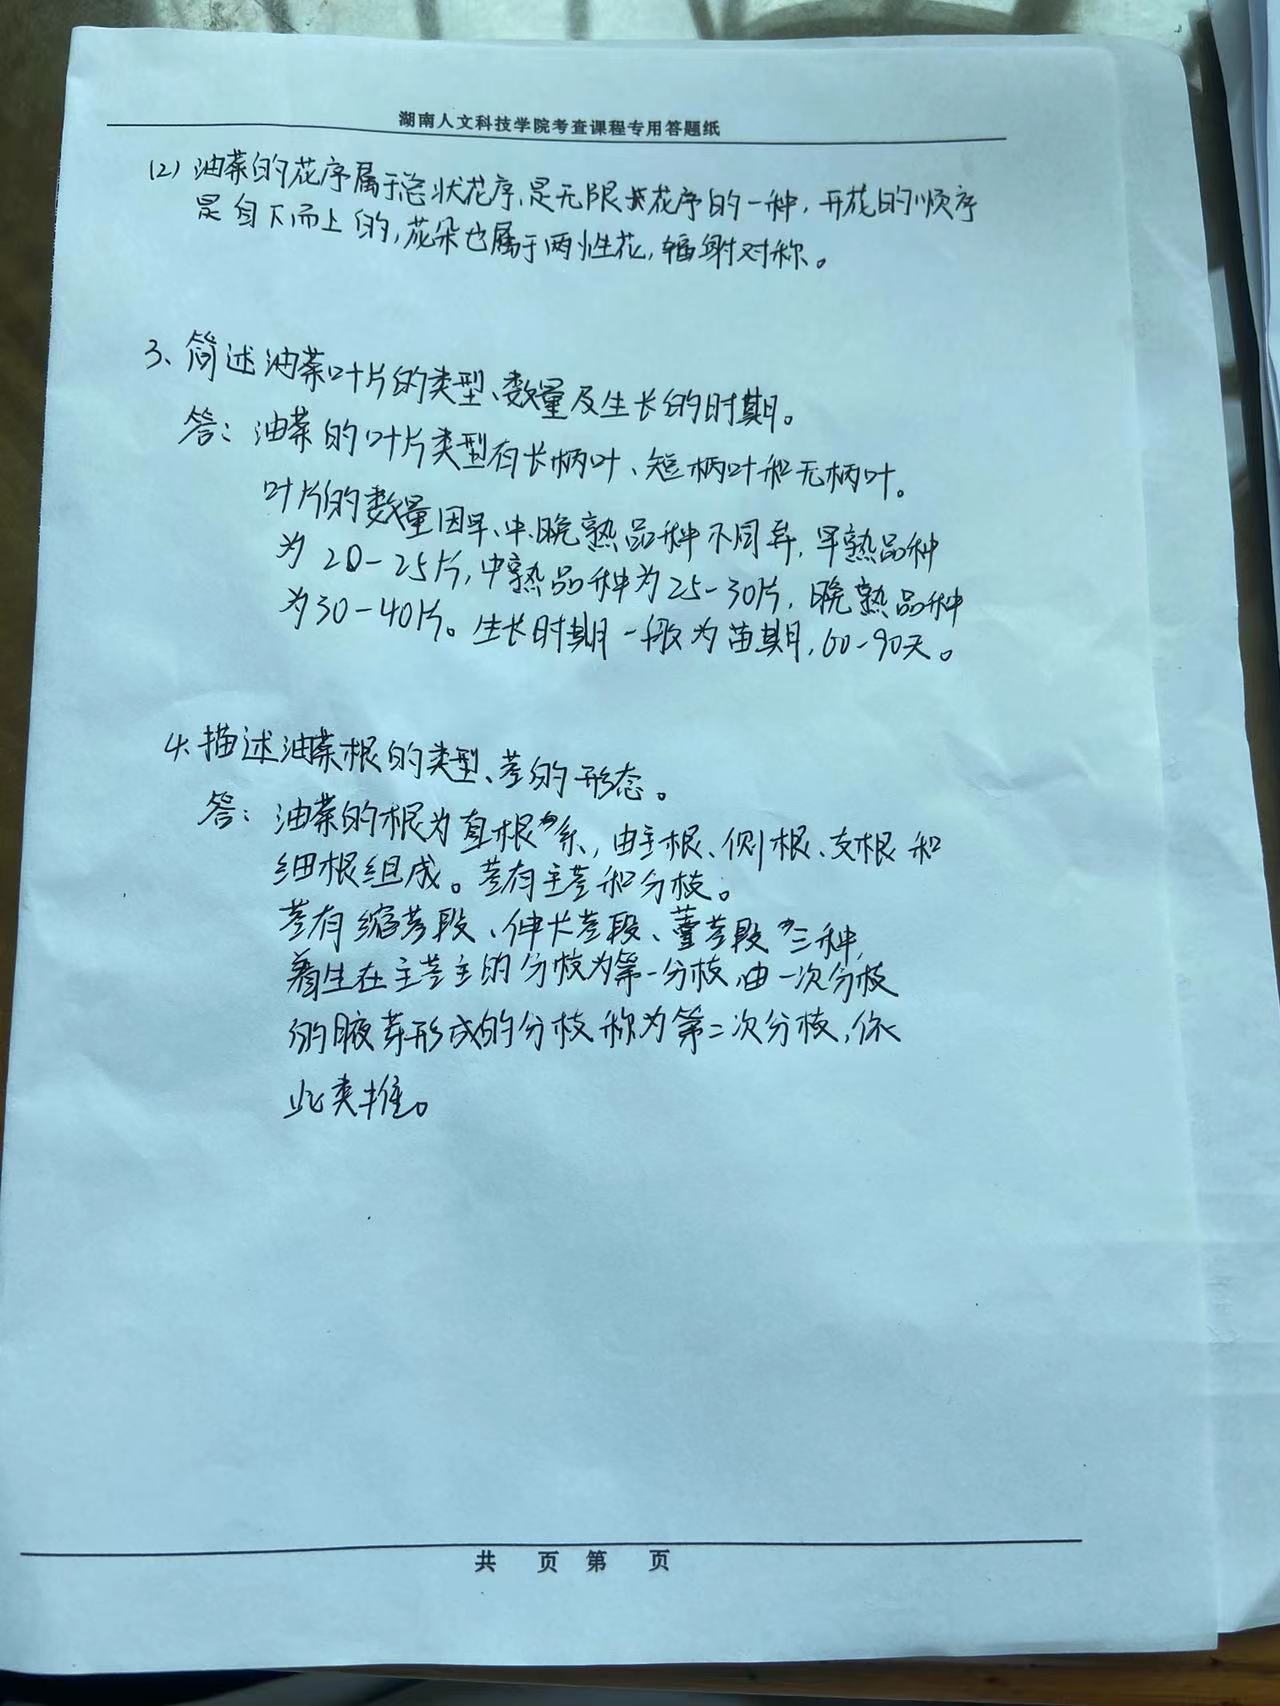 湖南人文科技学院考查课程专用答题纸
(2) 油菜的花序属于总状花序,是无限花序的一种,开花的顺序
是自下而上的,花朵也属于两性花,辐射对称。
3、简述油菜叶片的类型、数量及生长的时期。
答：油菜的叶片类型有长柄叶、短柄叶和无柄叶。
叶片的数量因早、中、晚熟品种不同异,早熟品种
为20-25片,中熟品种为25-30片,晚熟品种
为30-40片。生长时期一般为苗期,60-90天。
4.描述油菜根的类型、茎的形态。
答：油菜的根为直根系,由主根、侧根、支根和
细根组成。茎有主茎和分枝。
茎有缩茎段、伸长茎段、薹茎段三种,
着生在主茎主的分枝为第一分枝,由一次分枝
的腋芽形成的分枝称为第二次分枝,依
此类推。
共 页 第 页